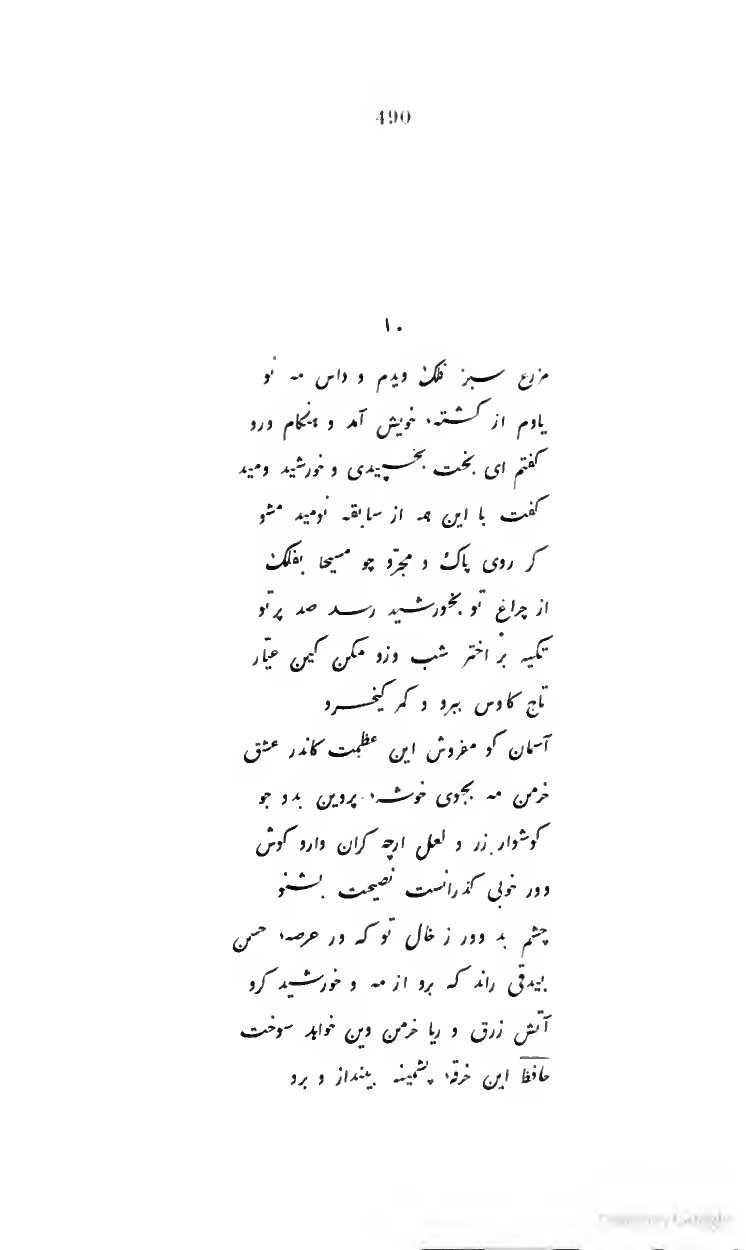 490
۱۰
مزرع سبز فلک دیدم و داس مه نو
یادم از کشتهٔ خویش آمد و هنگام درو
گفتم ای بخت بخسپیدی و خورشید دمید
گفت با این همه از سابقه نومید مشو
گر روی پاک و مجرّد چو مسیحا بفلک
از چراغ تو بخورشید رسد صد پرتو
تکیه بر اختر شب دزد مکن کین عیّار
تاج کاوس ببرد و کمر کیخسرو
آسمان گو مفروش این عظمت کاندر عشق
خرمن مه بجوی خوشهٔ پروین بدو جو
گوشوار زر و لعل ارچه گران دارد گوش
دور خوبی گذرانست نصیحت بشنو
چشم بد دور ز خال تو که در عرصهٔ حسن
بیدقی راند که برد از مه و خورشید گرو
آتش زرق و ریا خرمن دین خواهد سوخت
حافظ این خرقهٔ پشمینه بینداز و برو
Digitized by Google